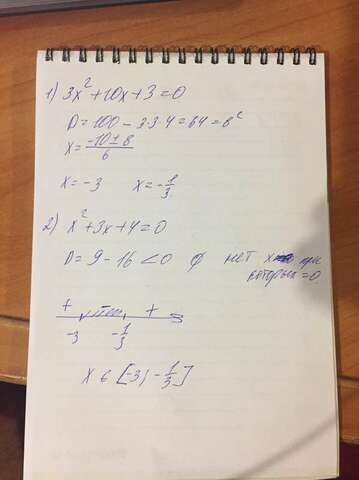 1) 3x² + 10x + 3 = 0
D = 100 - 3·3·4 = 64 = 8²
x = -10 ± 8 / 6
x = -3 x = -1/3
2) x² + 3x + 4 = 0
D = 9 - 16 < 0 ∅ нет x при
которых = 0
+ - +
-3 -1/3
x ∈ [-3; -1/3]